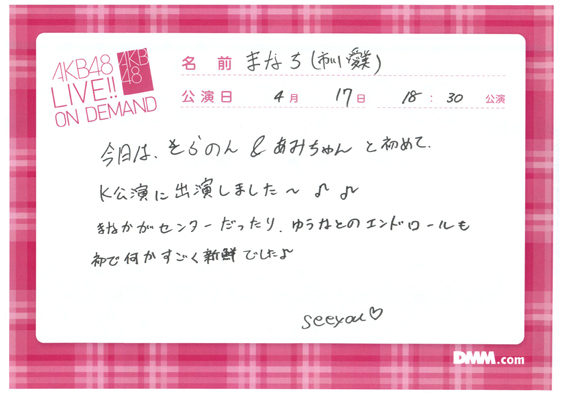 AKB48
LIVE!!
ON DEMAND
AKB
48
名前 まなち(市川愛美)
公演日 4月 17日 18:30 公演
今日は、そらのん & あみちゃん と初めて、
K公演に出演しました〜 ♪ ♪
まなかがセンターだったり、ゆうなとのエンドロールも
初で何かすごく新鮮でした♪
see you ♡
DMM.com